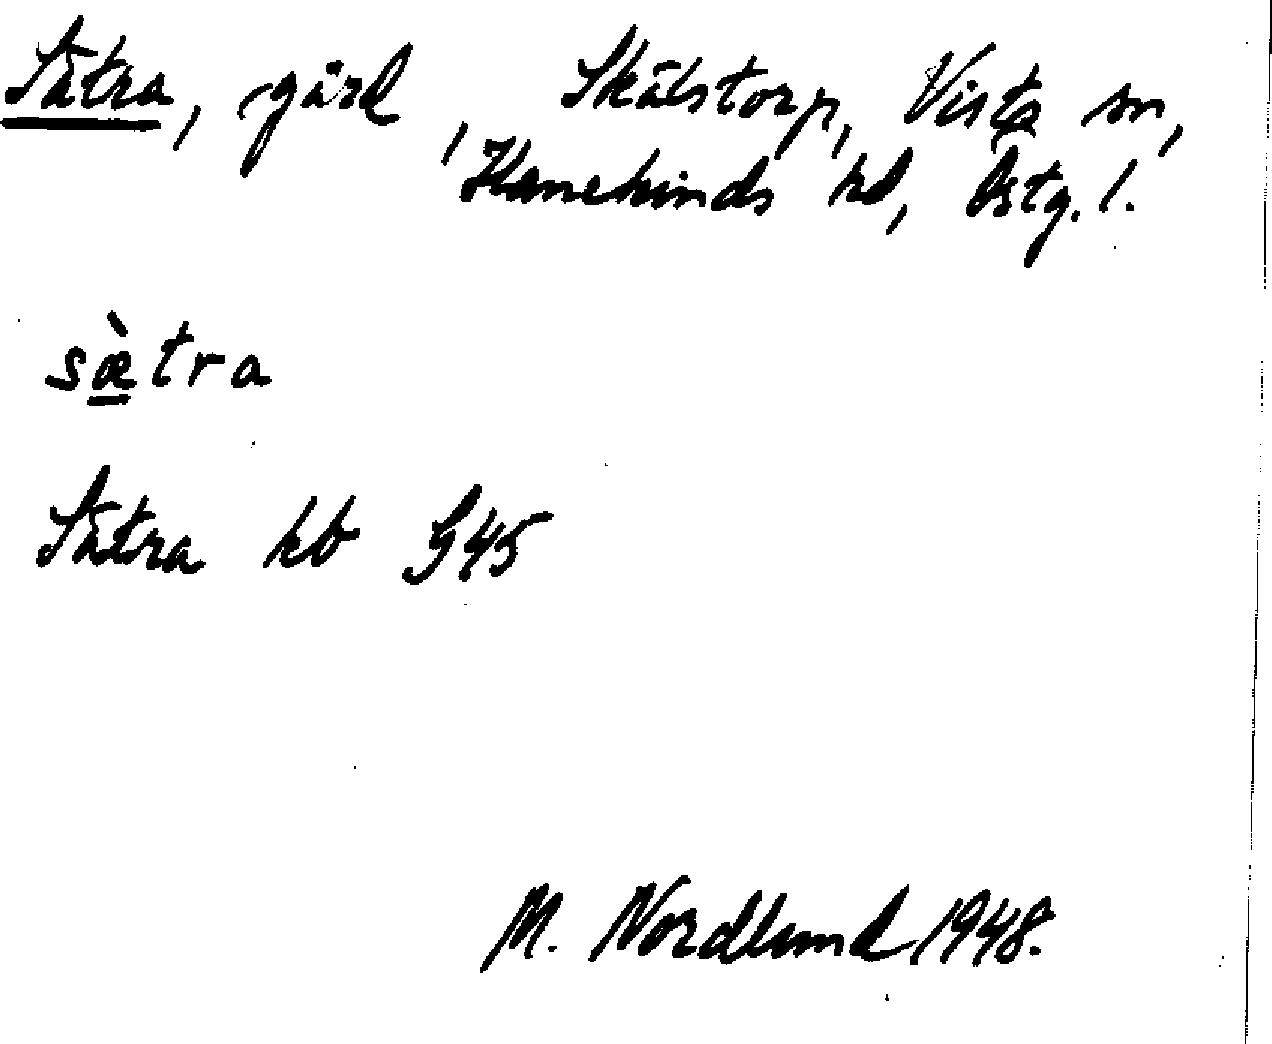 Sätra, gärd, Skälstorp, Vista sn,
Hanekinds hd, Östg. l.
sæ̀tra
Sätra kb G45
M. Nordlund 1948.